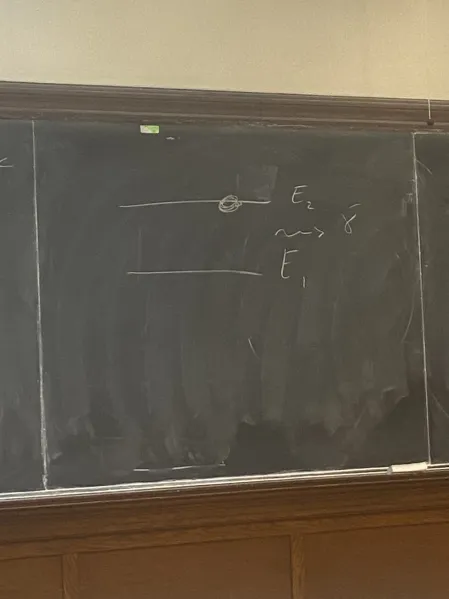 E₂
~~> γ
E₁